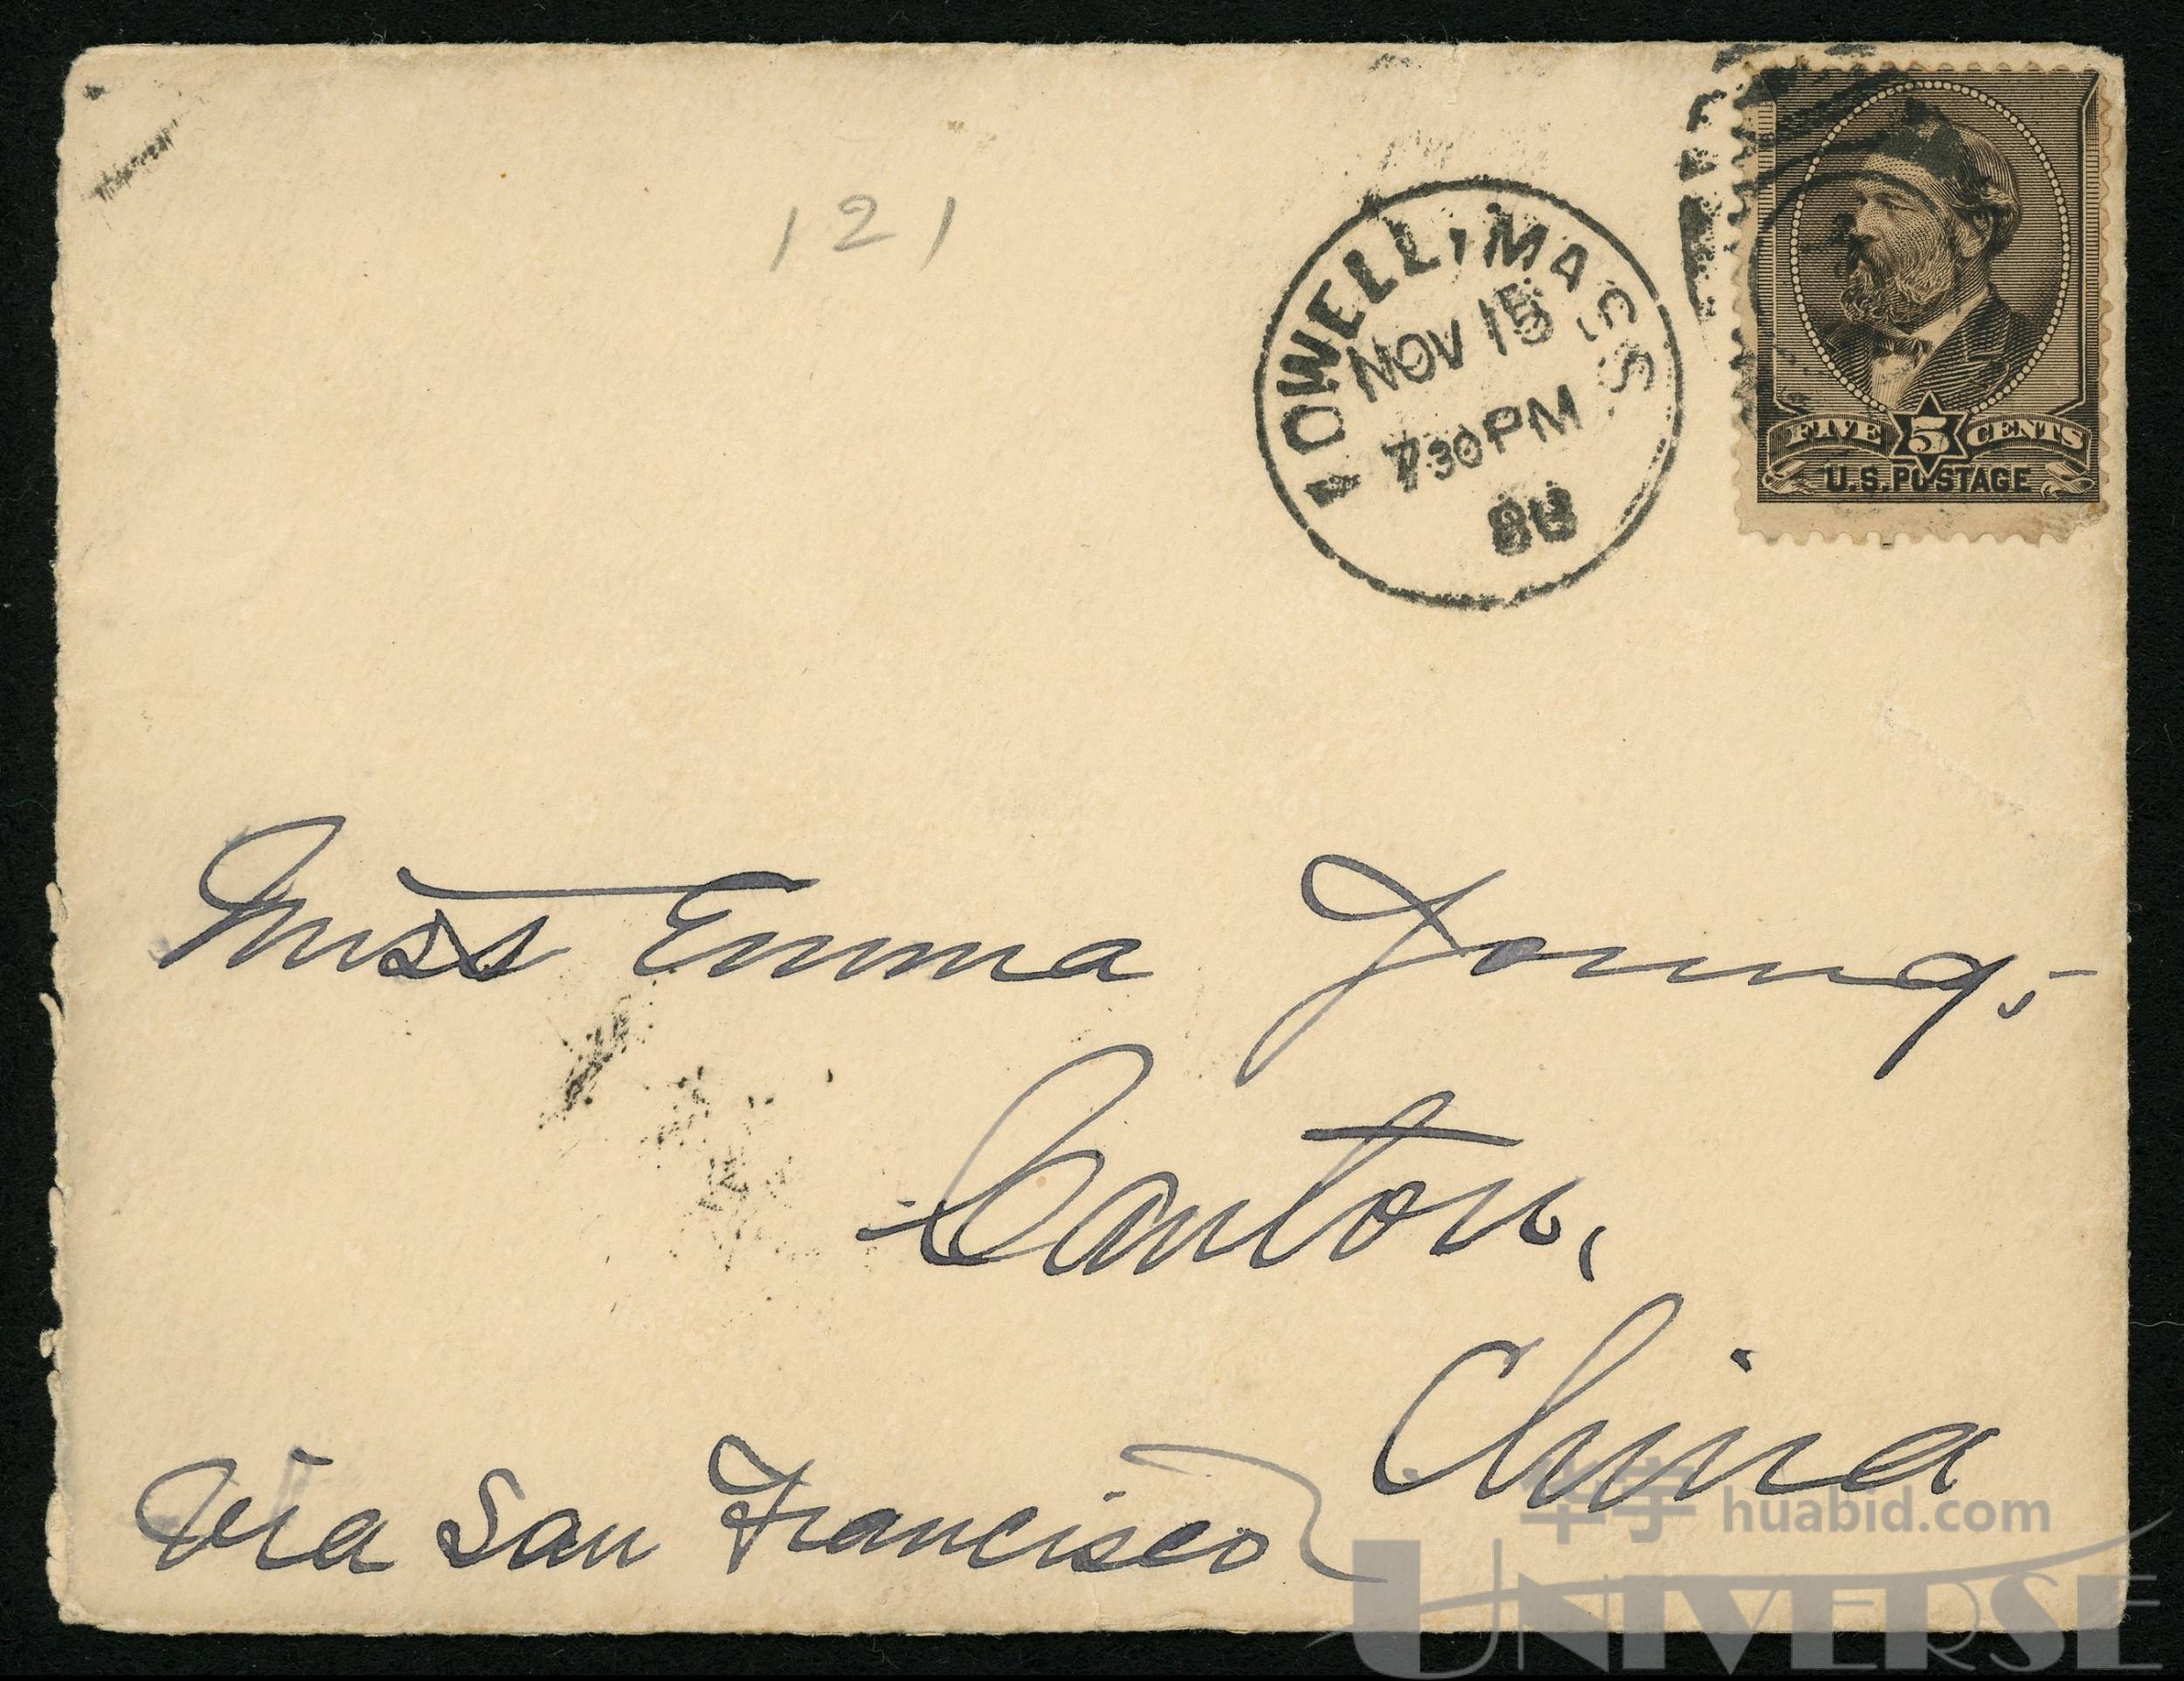 121
LOWELL, MASS.
NOV 15
730PM
88
FIVE 5 CENTS
U.S. POSTAGE
Miss Emma Young,
Canton,
China
Via San Francisco
华宇 huabid.com
UNIVERSE